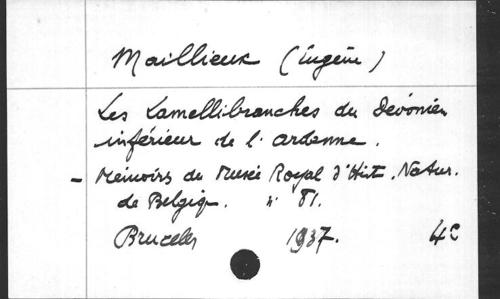 Maillieux (Eugène)
Les Lamellibranches du Dévonien
inférieur de l'Ardenne.
- Mémoirs du Musée Royal d'Hist. Natur.
de Belgiq. n° 81.
Bruxelles 1937. 4°